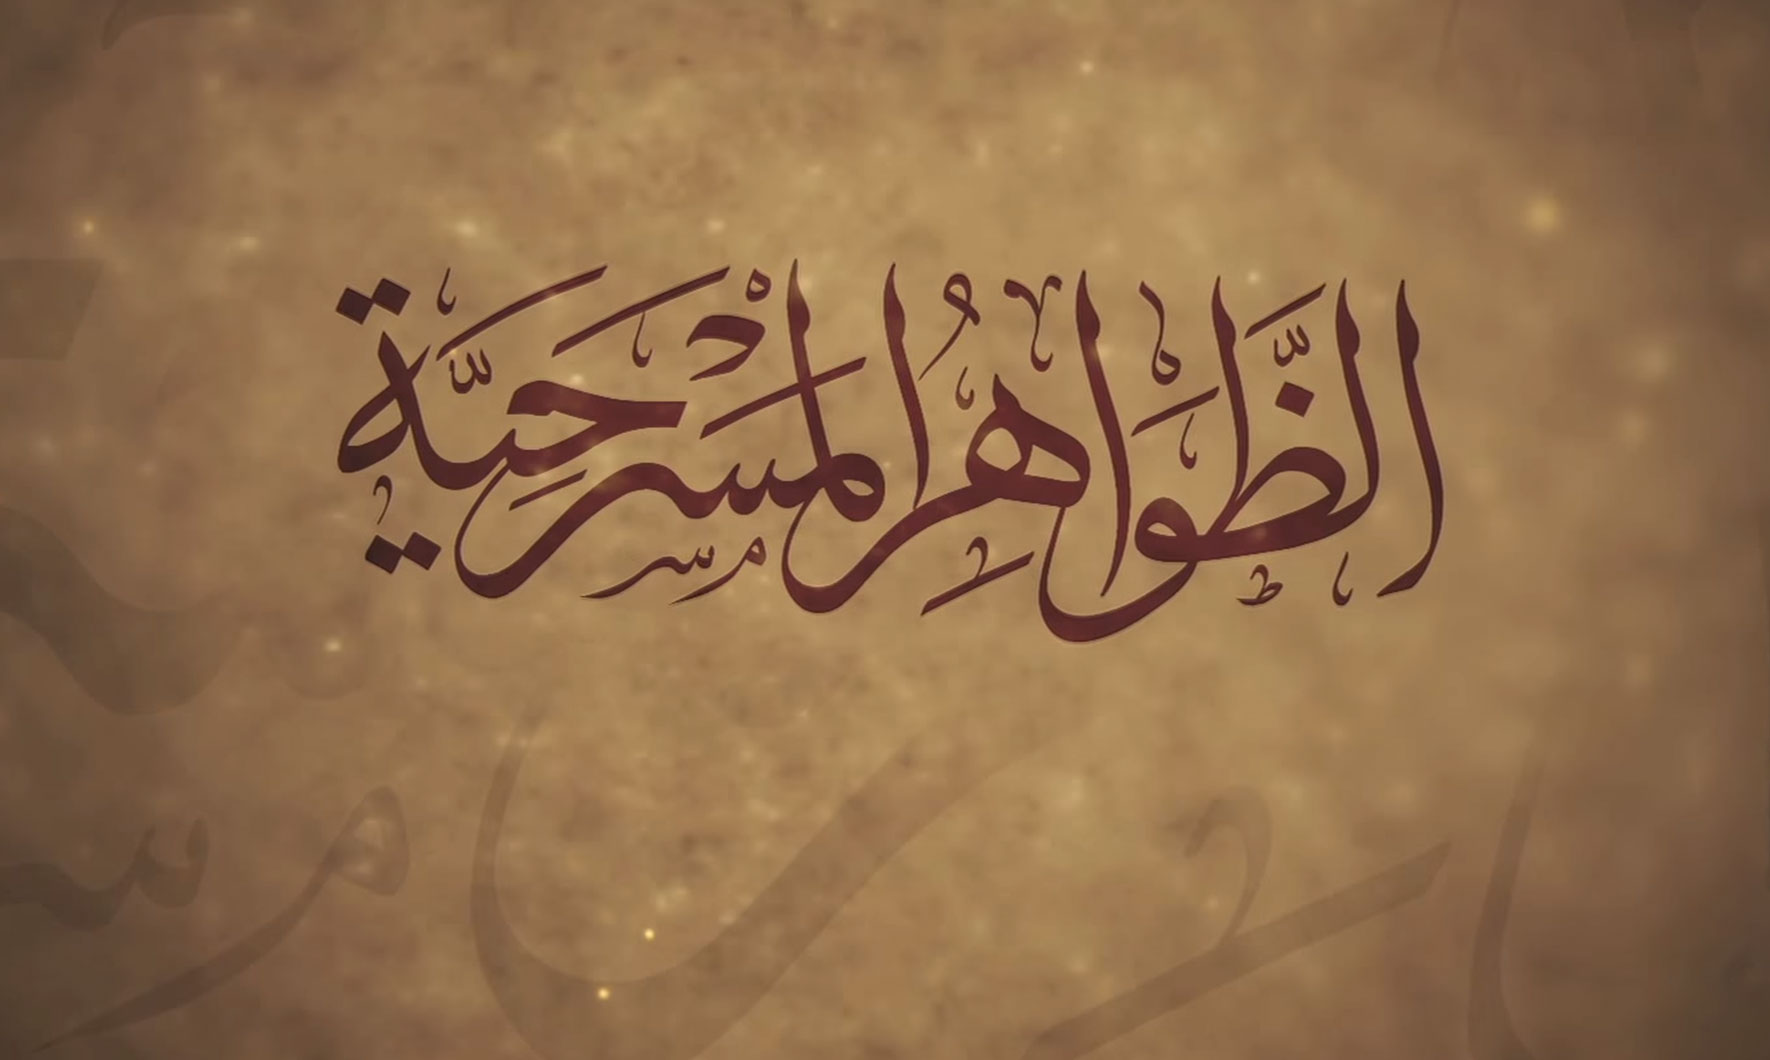 الظَّوَاهِرُ المَسْرَحِيَّة